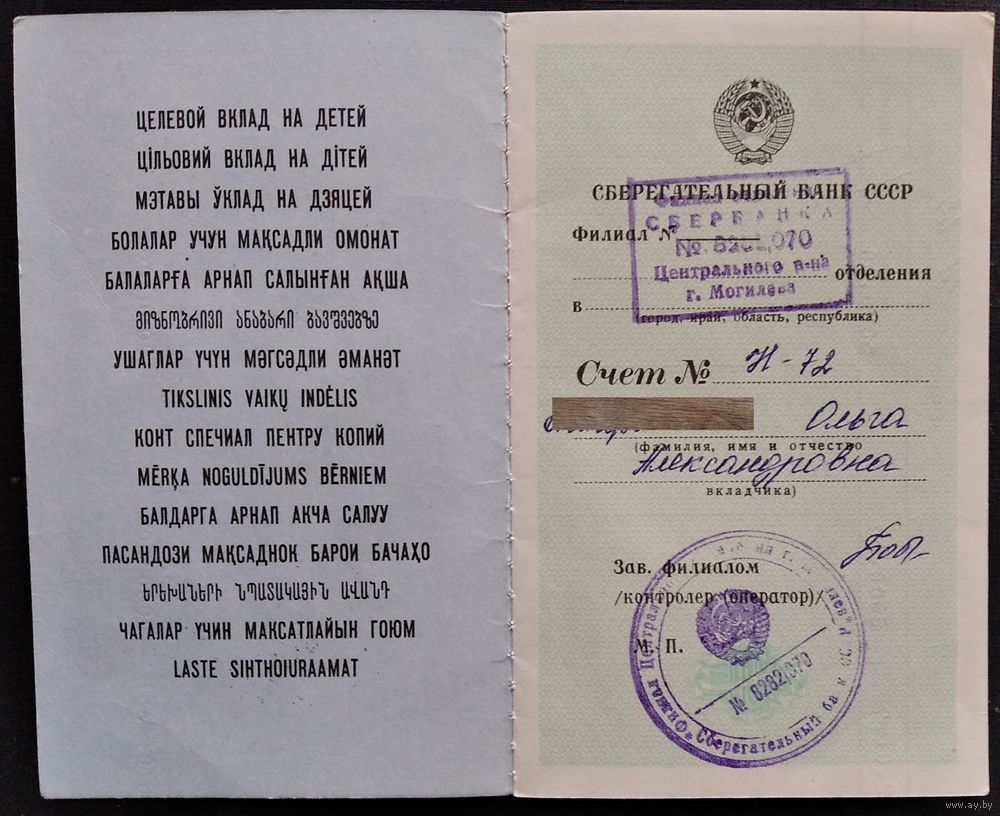 ЦЕЛЕВОЙ ВКЛАД НА ДЕТЕЙ
ЦІЛЬОВИЙ ВКЛАД НА ДІТЕЙ
МЭТАВЫ ЎКЛАД НА ДЗЯЦЕЙ
БОЛАЛАР УЧУН МАҚСАДЛИ ОМОНАТ
БАЛАЛАРҒА АРНАП САЛЫНҒАН АҚША
ᲛᲘᲖᲜᲝᲑᲠᲘᲕᲘ ᲐᲜᲐᲑᲐᲠᲘ ᲑᲐᲕᲨᲕᲔᲑᲖᲔ
УШАГЛАР ҮЧҮН МӘГСӘДЛИ ӘМАНӘТ
TIKSLINIS VAIKŲ INDĖLIS
КОНТ СПЕЧИАЛ ПЕНТРУ КОПИЙ
MĒRĶA NOGULDĪJUMS BĒRNIEM
БАЛДАРГА АРНАП АКЧА САЛУУ
ПАСАНДОЗИ МАҚСАДНОК БАРОИ БАЧАҲО
ԵՐԵԽԱՆԵՐԻ ՆՊԱՏԱԿԱՅԻՆ ԱՎԱՆԴ
ЧАГАЛАР ҮЧИН МАКСАТЛАЙЫН ГОЮМ
LASTE SIHTHOIURAAMAT
СБЕРЕГАТЕЛЬНЫЙ БАНК СССР
СБЕРБАНКА
Филиал №
№ 8282/070
Центрального р-на
отделения
г. Могилева
в
(город, край, область, республика)
Счет № Н-72
Ольга
(фамилия, имя и отчество
Александровна
вкладчика)
Зав. филиалом
/контролер (оператор)/
М. П.
№ 8282/070
Филиал Централь
Сберегательный ба
www.ay.by